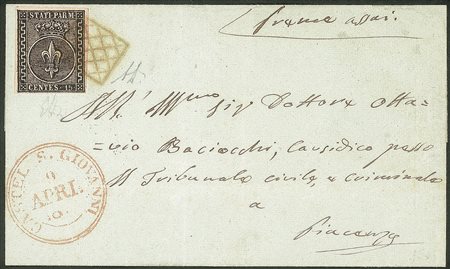 Preme assai.
STATI PARM.
CENTES. 15
All' Ill.mo Sig.r Dottore Otta=
vio Baciocchi, Causidico presso
Il Tribunale civile, e criminale
a
Piacenza
CASTEL S. GIOVANNI
9
APRL